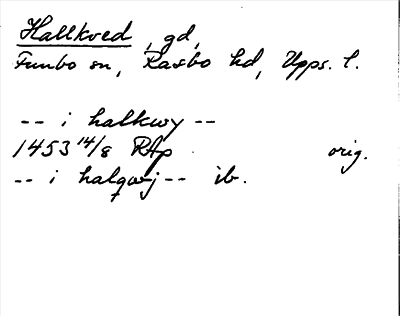 Hallkved, gd,
Funbo sn, Rasbo hd, Upps. l.
-- i halkwy --
1453 14/8 RAp orig.
-- i halqwj -- ib.